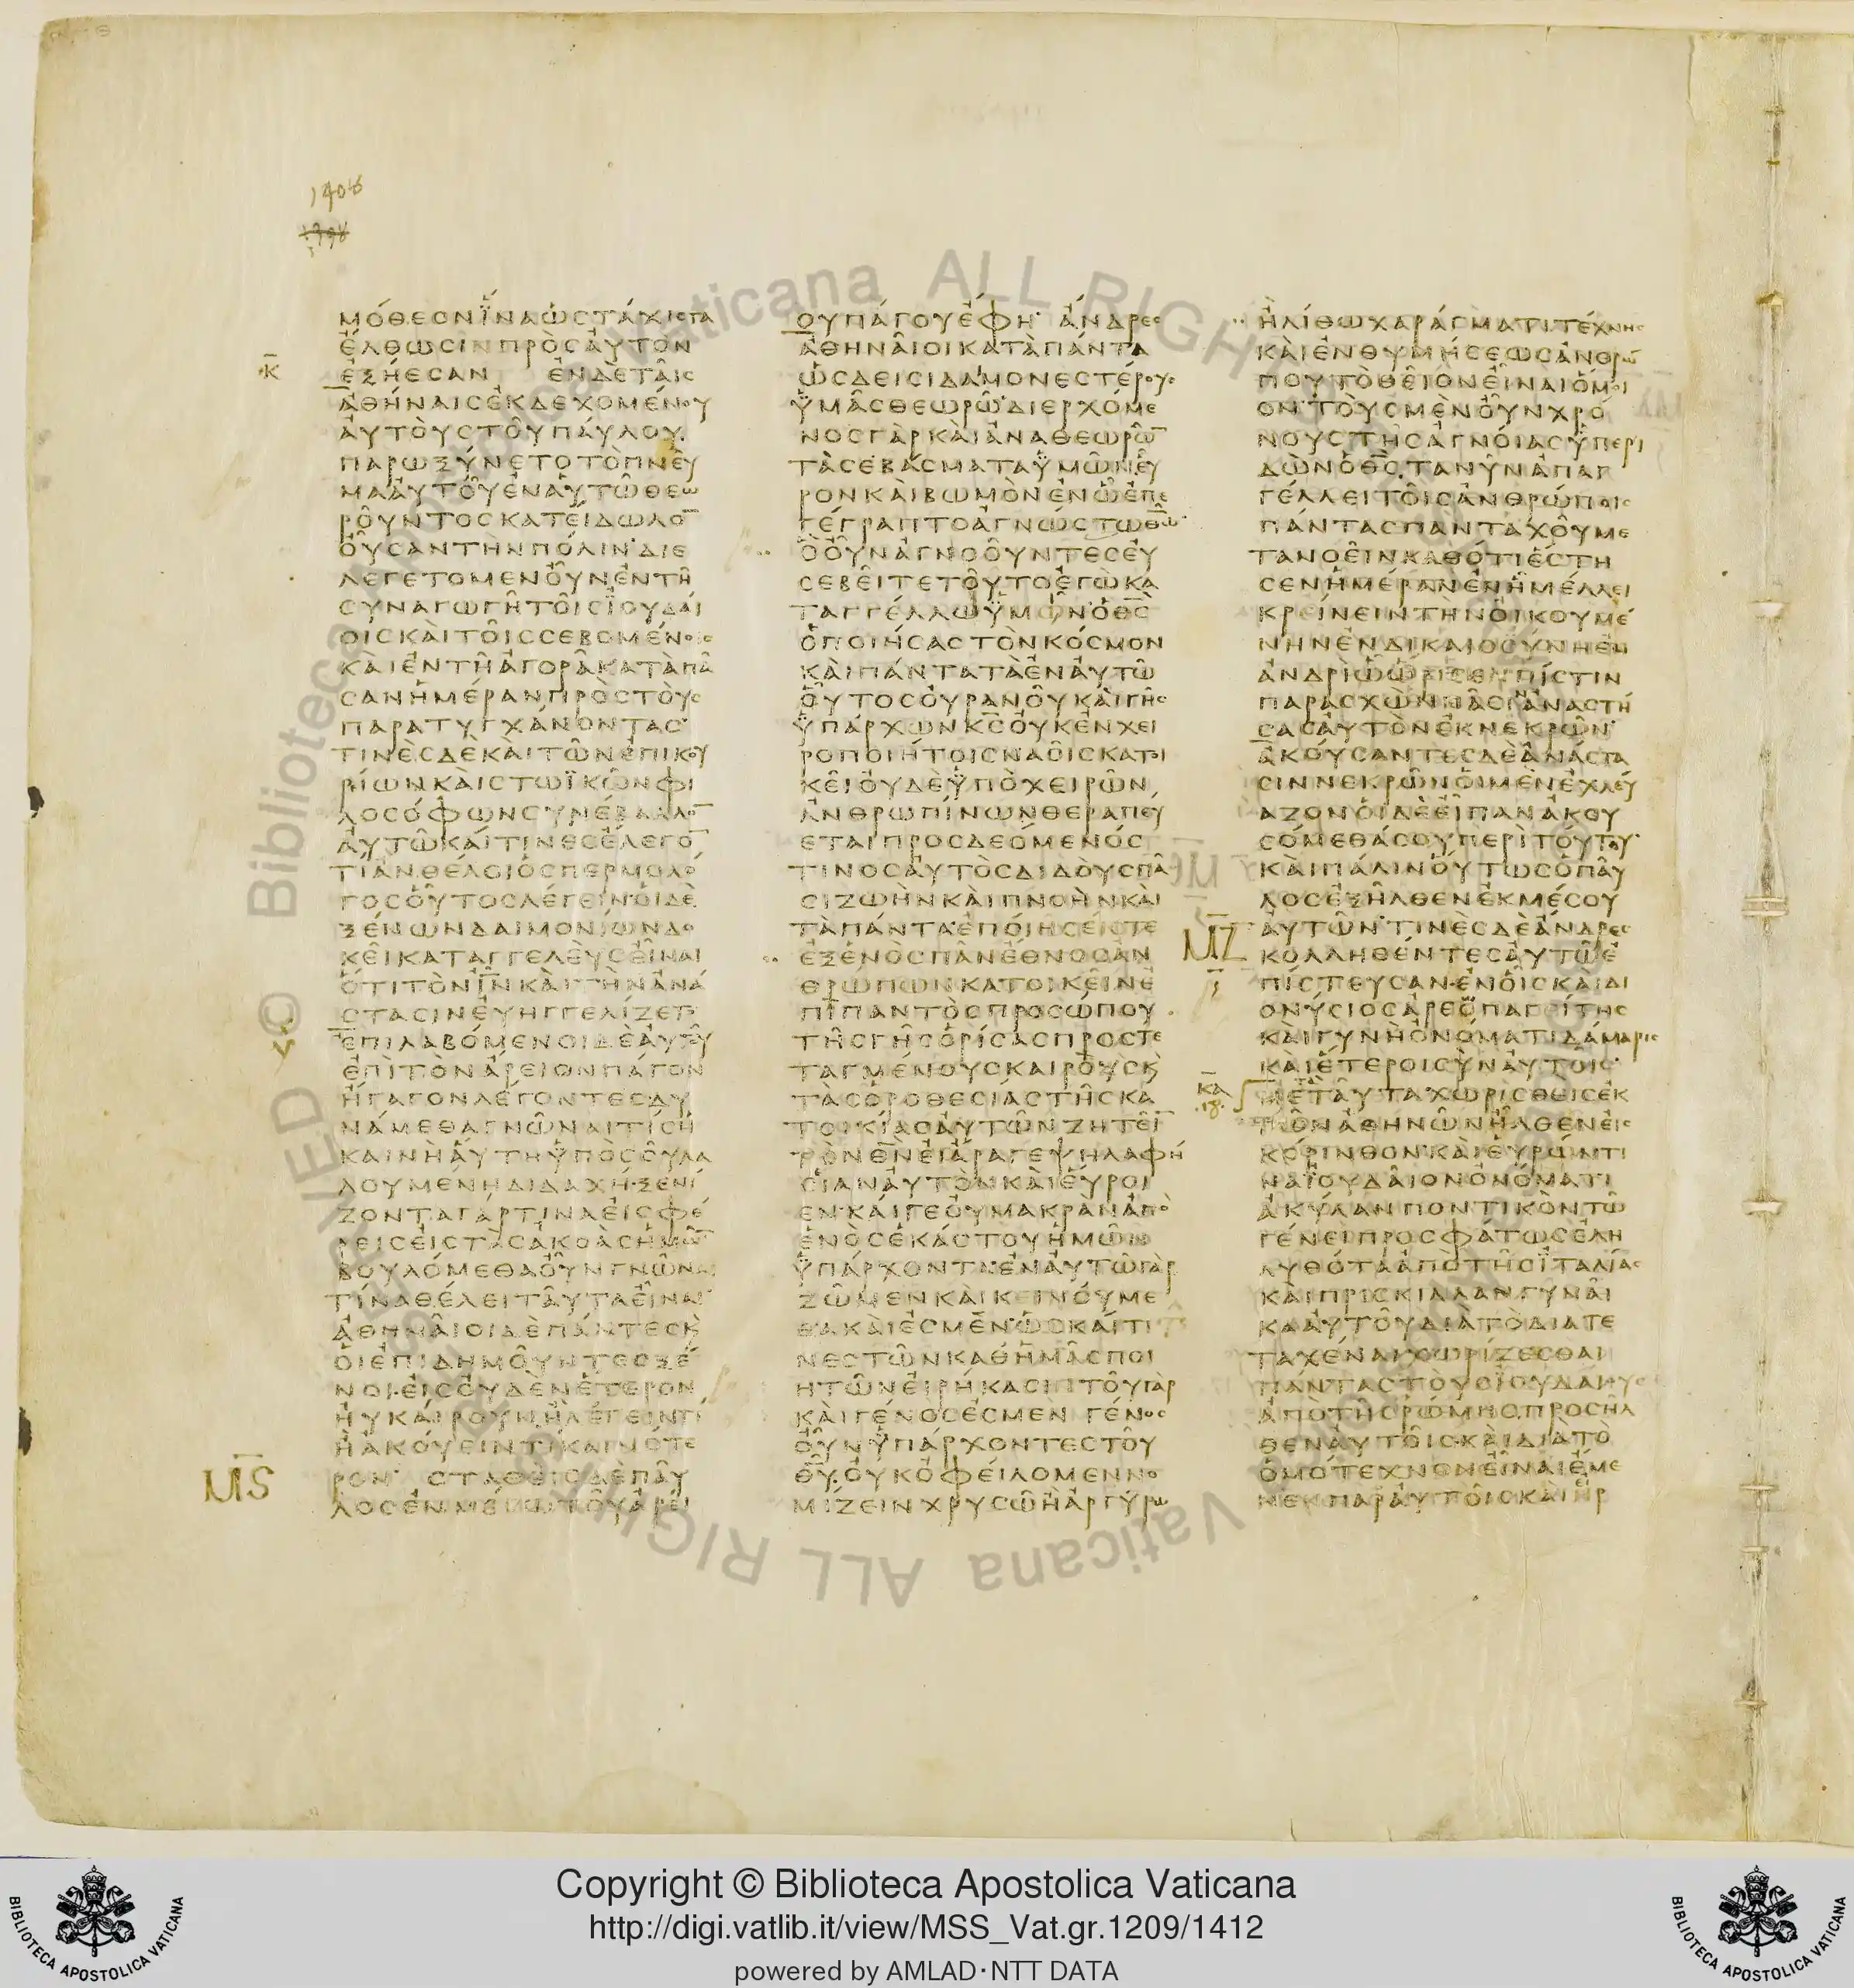 1408
1398
ΜΌΘΕΟΝΪ́ΝΑὩΣΤΆΧΙΣΤΑ
ἜΛΘΩΣΙΝΠΡῸΣΑΥ̓ΤῸΝ
Κ̅
ἘΞΉΕΣΑΝ ἘΝΔΕΤΑΙ͂Σ
ἈΘΉΝΑΙΣἘΚΔΕΧΟΜΈΝΟΥ
ΑΥ̓ΤΟῪΣΤΟΥ͂ΠΑΎΛΟΥ
ΠΑΡΩΞΎΝΕΤΟΤῸΠΝΕΥ͂
ΜΑΑΥ̓ΤΟΥ͂ἘΝΑΥ̓ΤΩ͂ΘΕΩ
ΡΟΥ͂ΝΤΟΣΚΑΤΕΊΔΩΛΟ̅
ΟΥ̓͂ΣΑΝΤῊΝΠΌΛΙΝ·ΔΙΕ
ΛΕΓΕΤΟΜΕΝΟΥ̓͂ΝἘΝΤΗ͂
ΣΥΝΑΓΩΓΗ͂ΤΟΙ͂ΣΪΟΥΔΑΊ
ΟΙΣΚΑῚΤΟΙ͂ΣΣΕΒΟΜΈΝΟΙΣ
ΚΑῚἘΝΤΗ͂ἈΓΟΡΑ͂ΚΑΤᾺΠΑ͂
ΣΑΝἩΜΈΡΑΝΠΡῸΣΤΟῪΣ
ΠΑΡΑΤΥΓΧΆΝΟΝΤΑΣ·
ΤΙΝῈΣΔῈΚΑῚΤΩ͂ΝἘΠΙΚΟΥ
ΡΊΩΝΚΑῚΣΤΩΪΚΩ͂ΝΦΙ
ΛΟΣΌΦΩΝΣΥΝΈΒΑΛΛΟ̅
ΑΥ̓ΤΩ͂ΚΑΊΤΙΝΕΣἜΛΕΓΟ̅
ΤΊἊΝΘΈΛΟΙὉΣΠΕΡΜΟΛΌ
ΓΟΣΟὟΤΟΣΛΈΓΕΙΝ·ΟἹΔῈ
ΞΈΝΩΝΔΑΙΜΟΝΊΩΝΔΟ
ΚΕΙ͂ΚΑΤΑΓΓΕΛΕῪΣΕἾΝΑΙ
ὍΤΙΤῸΝΙ̅Ν̅ΚΑῚΤῊΝἈΝΆ
ΣΤΑΣΙΝΕΥ̓ΗΓΓΕΛΊΖΕΤΟ
ἘΠΙΛΑΒΌΜΕΝΟΙΔῈΑΥ̓ΤΟΥ͂
ἘΠῚΤῸΝἌΡΕΙΟΝΠΆΓΟΝ
ἬΓΑΓΟΝΛΈΓΟΝΤΕΣΔΥ
ΝΆΜΕΘΑΓΝΩ͂ΝΑΙΤΊΣΗ
ΚΑΙΝῊΑὝΤΗΫ̔ΠῸΣΟΥ͂ΛΑ
ΛΟΥΜΈΝΗΔΙΔΑΧΉ·ΞΕΝΊ
ΖΟΝΤΑΓΆΡΤΙΝΑΕἸΣΦΈ
ΡΕΙΣΕἸΣΤᾺΣἈΚΟᾺΣἩΜΩ͂̅
ΒΟΥΛΌΜΕΘΑΟΥ̓͂ΝΓΝΩ͂ΝΑΙ
ΤΊΝΑΘΈΛΕΙΤΑΥ͂ΤΑΕἾΝΑΙ·
ἈΘΗΝΑΙ͂ΟΙΔῈΠΆΝΤΕΣΚ̀
ΟἹἘΠΙΔΗΜΟΥ͂ΝΤΕΣΞΈ
ΝΟΙ·ΕἸΣΟΥ̓ΔῈΝἝΤΕΡΟΝ
ΗΥ̓ΚΑΊΡΟΥΝἪΛΈΓΕΙΝΤΙ
ἪἈΚΟΎΕΙΝΤΙΚΑΙΝΌΤΕ
Μ̅Σ̅
ΡΟΝ· ΣΤΑΘΕῚΣΔῈΠΑΥ͂
ΛΟΣἘΝΜΈΣΩΤΟΥ͂ἈΡΕΊ
ΟΥΠΆΓΟΥἜΦΗ· ἌΝΔΡΕΣ
ἈΘΗΝΑΙ͂ΟΙΚΑΤᾺΠΆΝΤΑ
ὩΣΔΕΙΣΙΔΑΙΜΟΝΕΣΤΈΡΟΥΣ
Ϋ̔ΜΑ͂ΣΘΕΩΡΩ͂·ΔΙΕΡΧΌΜΕ
ΝΟΣΓᾺΡΚΑῚἈΝΑΘΕΩΡΩ͂̅
ΤᾺΣΕΒΆΣΜΑΤΑΫ̔ΜΩ͂ΝΕὟ
ΡΟΝΚΑῚΒΩΜῸΝἘΝὯἘΠΕ
ΓΈΓΡΑΠΤΟἈΓΝΏΣΤΩΘΩ͂·
ὋΟΥ̓͂ΝἈΓΝΟΟΥ͂ΝΤΕΣΕΥ̓
ΣΕΒΕΙ͂ΤΕΤΟΥ͂ΤΟἘΓῺΚΑ
ΤΑΓΓΈΛΛΩΫ̔ΜΙ͂Ν·ὉΘ̅Σ̅
ὉΠΟΙΉΣΑΣΤῸΝΚΌΣΜΟΝ
ΚΑῚΠΆΝΤΑΤᾺἘΝΑΥ̓ΤΩ͂
ΟὟΤΟΣΟΥ̓ΡΑΝΟΥ͂ΚΑῚΓΗ͂Σ
Ϋ̔ΠΆΡΧΩΝΚ̅Σ̅ΟΥ̓ΚἘΝΧΕΙ
ΡΟΠΟΙΉΤΟΙΣΝΑΟΙ͂ΣΚΑΤΟΙ
ΚΕΙ͂ΟΥ̓ΔῈΫ̔ΠῸΧΕΙΡΩ͂Ν
ἈΝΘΡΩΠΊΝΩΝΘΕΡΑΠΕΎ
ΕΤΑΙΠΡΟΣΔΕΌΜΕΝΌΣ
ΤΙΝΟΣΑΥ̓ΤῸΣΔΙΔΟῪΣΠΑ͂
ΣΙΖΩῊΝΚΑῚΠΝΟῊΝΚΑῚ
ΤᾺΠΆΝΤΑ·ἘΠΟΊΗΣΕΊΣΤΕ
ἘΞἙΝῸΣΠΑ͂ΝἜΘΝΟΣἈΝ
ΘΡΏΠΩΝΚΑΤΟΙΚΕΙ͂ΝἘ
ΠῚΠΑΝΤῸΣΠΡΟΣΏΠΟΥ
ΤΗ͂ΣΓΗ͂ΣὉΡΊΣΑΣΠΡΟΣΤΕ
ΤΑΓΜΈΝΟΥΣΚΑΙΡΟῪΣΚ̀
ΤᾺΣὉΡΟΘΕΣΊΑΣΤΗ͂ΣΚΑ
ΤΟΙΚΊΑΣΑΥ̓ΤΩ͂ΝΖΗΤΕΙ͂̅
ΤῸΝΘ̅Ν̅ΕἸἌΡΑΓΕΨΗΛΑΦΉ
ΣΙΑΝΑΥ̓ΤῸΝΚΑῚΕὝΡΟΙ
ΕΝ·ΚΑΊΓΕΟΥ̓ΜΑΚΡᾺΝἈΠῸ
ἙΝῸΣἙΚΆΣΤΟΥἩΜΩ͂Ν
Ϋ̔ΠΆΡΧΟΝΤΑ·ἘΝΑΥ̓ΤΩ͂ΓᾺΡ
ΖΩ͂ΜΕΝΚΑῚΚΕΙΝΟΎΜΕ
ΘΑΚΑῚἘΣΜΈΝ·ὩΣΚΑΊΤΙ
ΝΕΣΤΩ͂ΝΚΑΘἩΜΑ͂ΣΠΟΙ
ΗΤΩ͂ΝΕἸΡΉΚΑΣΙΝΤΟΥ͂ΓᾺΡ
ΚΑῚΓΈΝΟΣἘΣΜΕΝ ΓΈΝΟΣ
ΟΥ̓͂ΝΫ̔ΠΆΡΧΟΝΤΕΣΤΟΥ͂
Θ̅Υ̅·ΟΥ̓ΚὈΦΕΊΛΟΜΕΝΝΟ
ΜΊΖΕΙΝΧΡΥΣΩ͂ἪἈΡΓΎΡΩ
ἪΛΊΘΩΧΑΡΆΓΜΑΤΙΤΈΧΝΗΣ
ΚΑῚἘΝΘΥΜΉΣΕΩΣἈΝΘΡΏ
ΠΟΥΤῸΘΕΙ͂ΟΝΕἾΝΑΙὍΜΟΙ
ΟΝ·ΤΟῪΣΜῈΝΟΥ̓͂ΝΧΡΌ
ΝΟΥΣΤΗ͂ΣἈΓΝΟΊΑΣΫ̔ΠΕΡΙ
ΔῺΝὉΘ̅Σ̅ΤΑΝΥ͂ΝἈΠΑΓ
ΓΈΛΛΕΙΤΟΙ͂ΣἈΝΘΡΏΠΟΙΣ
ΠΆΝΤΑΣΠΑΝΤΑΧΟΥ͂ΜΕ
ΤΑΝΟΕΙ͂ΝΚΑΘΌΤΙἜΣΤΗ
ΣΕΝἩΜΈΡΑΝἘΝἯΜΈΛΛΕΙ
ΚΡΕΊΝΕΙΝΤῊΝΟἸΚΟΥΜΈ
ΝΗΝἘΝΔΙΚΑΙΟΣΎΝΗἘΝ
ἈΝΔΡῚὯὭΡΙΣΕΝΠΊΣΤΙΝ
ΠΑΡΑΣΧῺΝΠΑ͂ΣΙΝἈΝΑΣΤΉ
ΣΑΣΑΥ̓ΤῸΝἘΚΝΕΚΡΩ͂Ν·
ἈΚΟΎΣΑΝΤΕΣΔῈἈΝΆΣΤΑ
ΣΙΝΝΕΚΡΩ͂ΝΟἹΜῈΝἘΧΛΕΎ
ΑΖΟΝΟἹΔῈΕἾΠΑΝἈΚΟΥ
ΣΌΜΕΘΆΣΟΥΠΕΡῚΤΟΎΤΟΥ·
ΚΑῚΠΆΛΙΝΟὝΤΩΣὉΠΑΥ͂
ΛΟΣἘΞΗ͂ΛΘΕΝἘΚΜΈΣΟΥ
Μ̅Ζ̅
ΑΥ̓ΤΩ͂Ν·ΤΙΝῈΣΔῈἌΝΔΡΕΣ
ΚΟΛΛΗΘΈΝΤΕΣΑΥ̓ΤΩ͂Ἐ
ΠΊΣΤΕΥΣΑΝ·ἘΝΟἿΣΚΑῚΔΙ
ΟΝΎΣΙΟΣἈΡΕΟΠΑΓΕΊΤΗΣ
ΚΑῚΓΥΝῊὈΝΌΜΑΤΙΔΆΜΑΡΙΣ
ΚΑῚἝΤΕΡΟΙΣῪΝΑΥ̓ΤΟΙ͂Σ·
Κ̅Α̅
·18·
ΜΕΤᾺΤΑΥ͂ΤΑΧΩΡΙΣΘΕῚΣἘΚ
ΤΩ͂ΝἈΘΗΝΩ͂ΝἮΛΘΕΝΕἸΣ
ΚΌΡΙΝΘΟΝ·ΚΑῚΕὙΡΏΝΤΙ
ΝΑΪΟΥΔΑΙ͂ΟΝὈΝΌΜΑΤΙ
ἈΚΎΛΑΝΠΟΝΤΙΚῸΝΤΩ͂
ΓΈΝΕΙΠΡΟΣΦΆΤΩΣἘΛΗ
ΛΥΘΌΤΑἈΠῸΤΗ͂ΣΪΤΑΛΊΑΣ
ΚΑῚΠΡΙΣΚΙΛΛΑΝΓΥΝΑΙ͂
ΚΑΑΥ̓ΤΟΥ͂ΔΙᾺΤῸΔΙΑΤΕ
ΤΑΧΈΝΑΙΧΩΡΊΖΕΣΘΑΙ
ΠΆΝΤΑΣΤΟῪΣΪΟΥΔΑΊΟΥΣ
ἈΠῸΤΗ͂ΣΡΏΜΗΣΠΡΟΣΗ͂Λ
ΘΕΝΑΥ̓ΤΟΙ͂Σ·ΚΑῚΔΙᾺΤῸ
ὉΜΌΤΕΧΝΟΝΕἾΝΑΙἜΜΕ
ΝΕΝΠΑΡΑΥ̓ΤΟΙ͂ΣΚΑῚἨΡ
Copyright © Biblioteca Apostolica Vaticana
http://digi.vatlib.it/view/MSS_Vat.gr.1209/1412
powered by AMLAD·NTT DATA
BIBLIOTECA APOSTOLICA VATICANA
BIBLIOTECA APOSTOLICA VATICANA